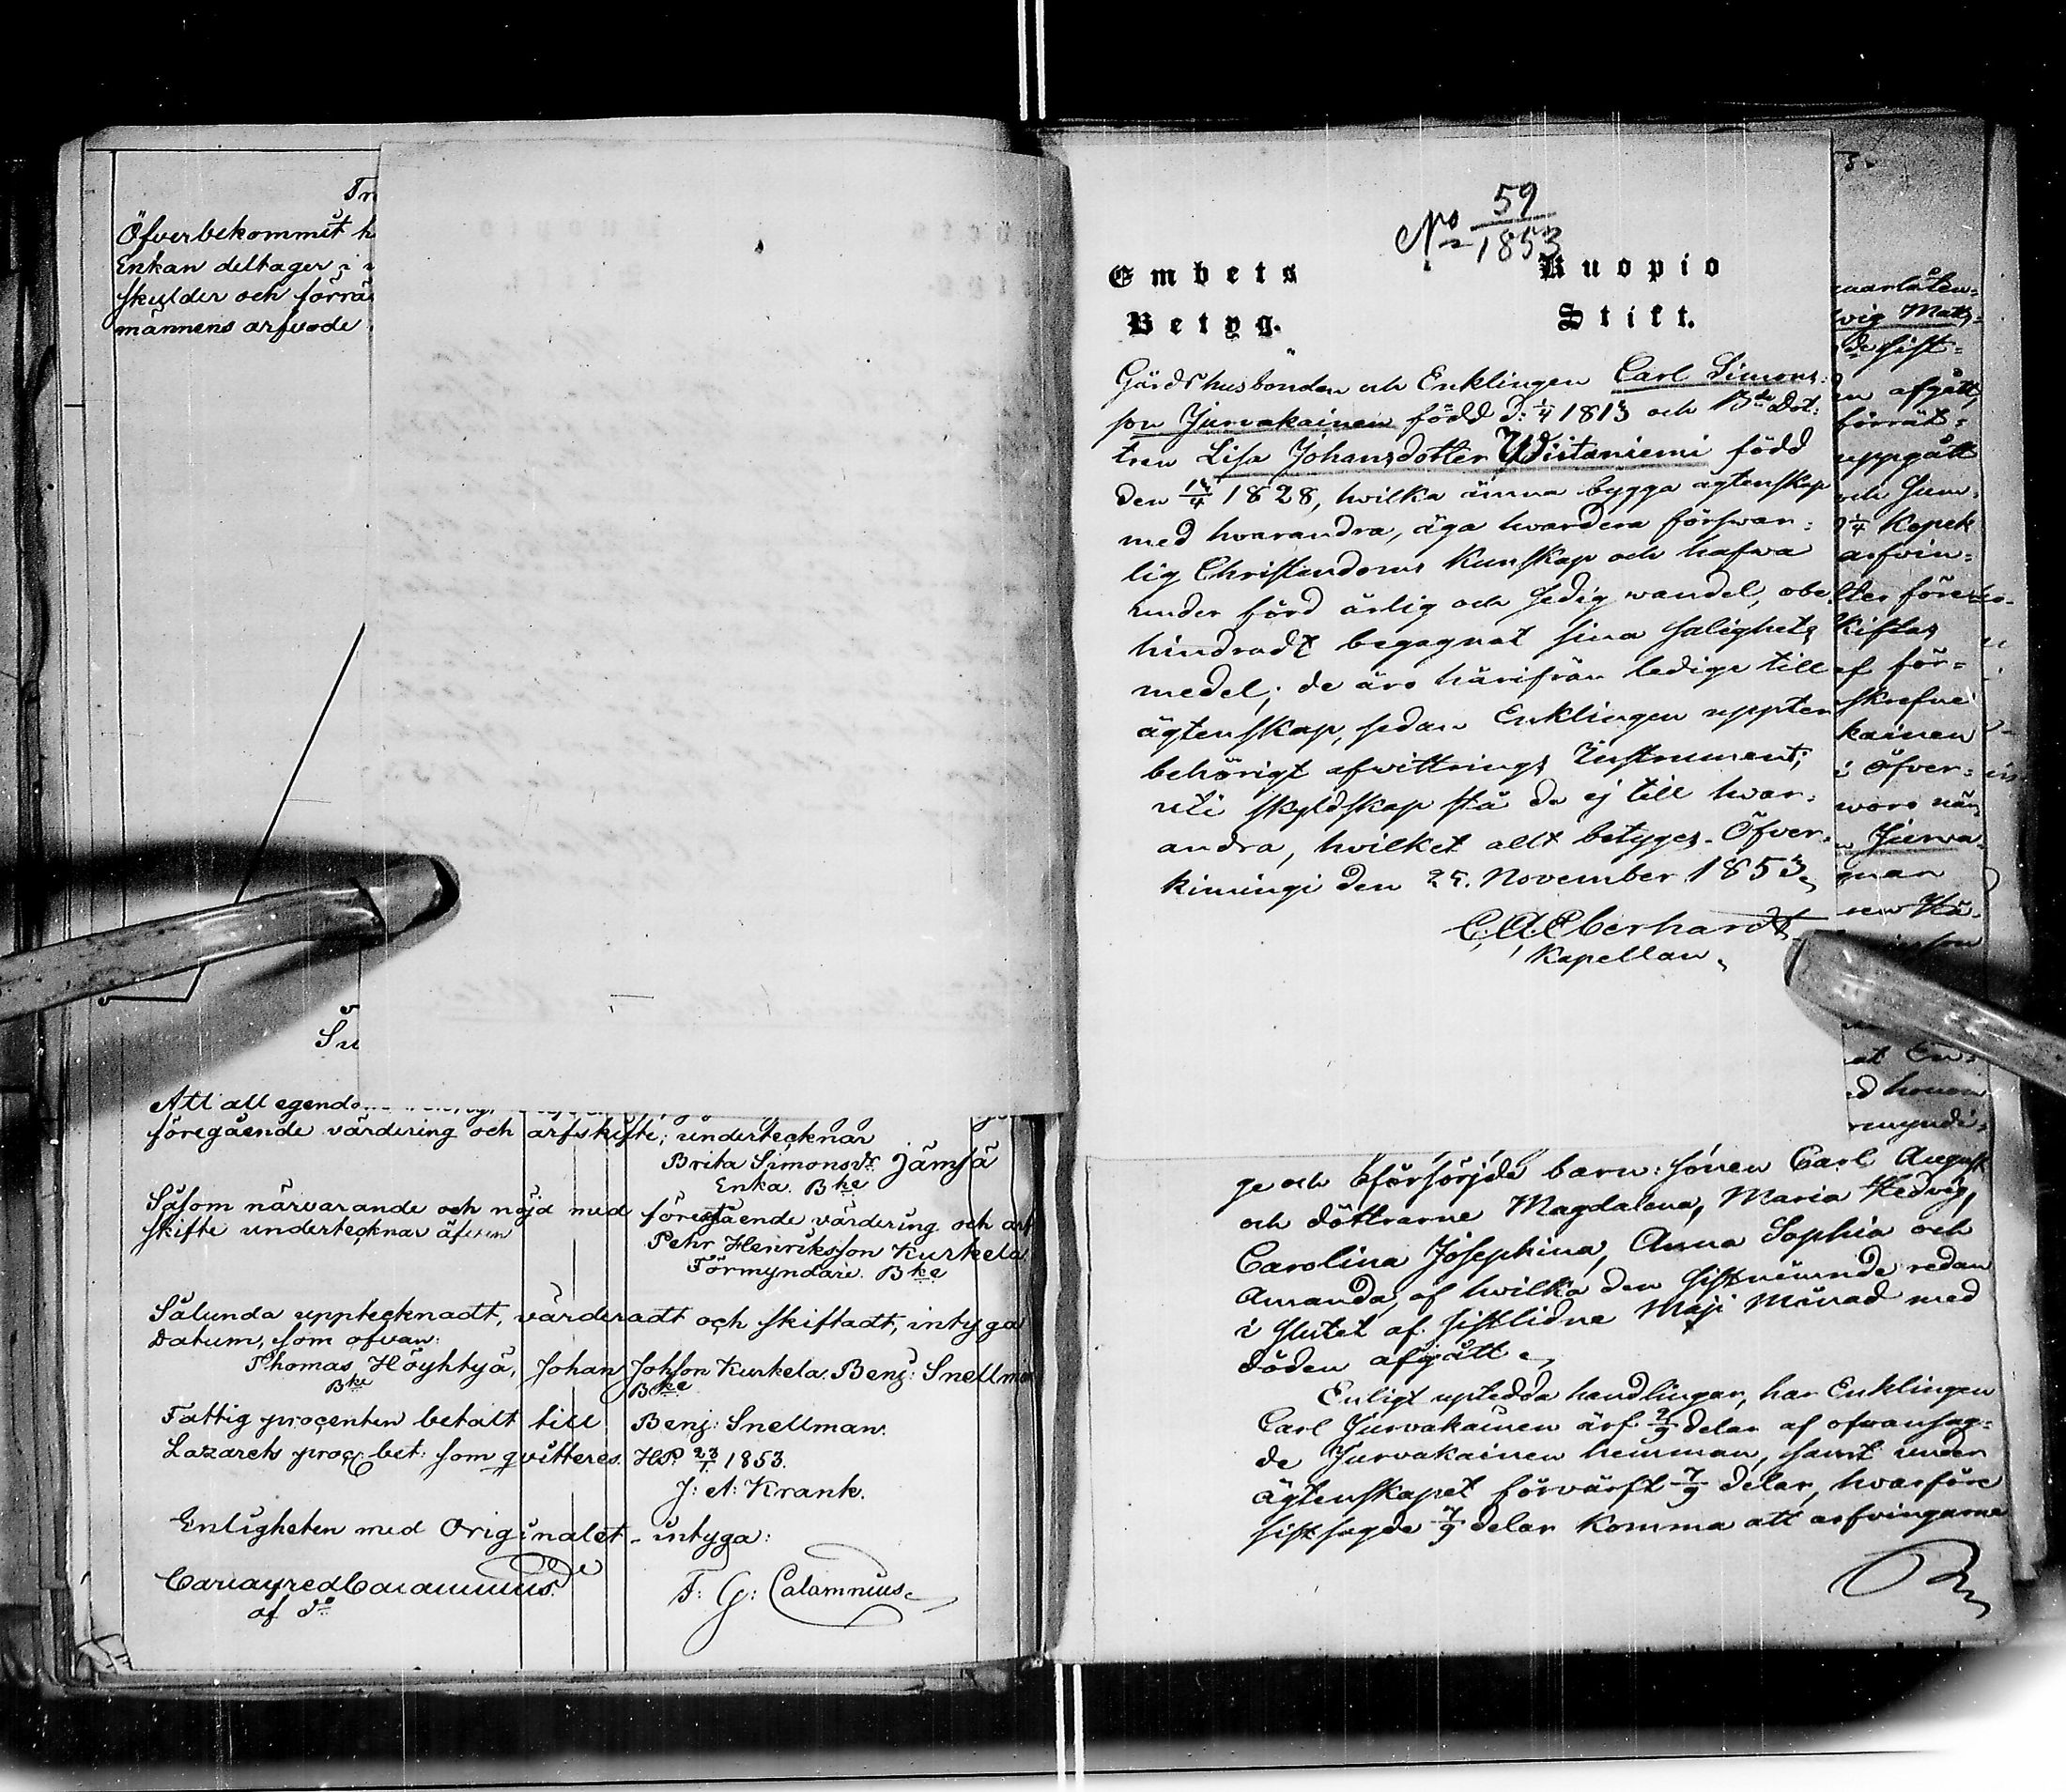 Öfverbekommit
Enkan deltager i
skulder och
männens arfvode
Su
Att all
föregående värdering och arfskifte, undertecknar
Brita Simonsdr Jämsä
Enka. Bke
Såsom närvarande och nöjd med föregående värdering och arf
skifte undertecknar äfven
Pehr Henriksson Kurkela
Förmyndare. Bke
Sålunda upptecknadt, värderadt och skiftadt, intyga
Datum, som ofvan:
Thomas Höyhtyä, Johan Johsson Kurkela. Benj: Snellman
Bke Bke
Fattig procenten betalt till Benj: Snellman.
Lazarets proc: bet: som qvitteres. HP. 23/1 1853.
J: A: Krank.
Enligheten med Originalet, intyga:
F: G: Calamnius
af do
No 59/1853
Embets Kuopio
Betyg. Stift.
Gårdshusbonden och Enklingen Carl Simons-
son Jurvakainen född d: 1/4 1813 och Bde Dot:
tren Lisa Johansdotter Ylitaniemi född
den 14/4 1828, hvilka ämna bygga ägtenskap
med hvarandra, äga hvardera förswar:
lig Christendoms Kunskap och hafwa
under förd ärlig och sedig wandel, obe
hindradt begagnat sina salighets
medel; de äro härifrån lediga till
ägtenskap, sedan Enklingen uppter
behörigt afvittrings Instrument;
uti skyldskap stå de ej till hvar:
andra, hvilket allt betyges. Öfver-
kimingi den 25. November 1853.
C. A. Eberhardt
Kapellan.
wig Mats-
de sist-
afgått
förrät-
uppgått
och Sum-
1/4 Kopek
arfvin-
före
skiftas
af för-
skrefne
kainen
i Öfver-
woro när
Jurva-
honom
ge och oförsörjde barn: sonen Carl August
och döttrarne Magdalena, Maria Hedvig,
Carolina Josephina, Anna Sophia och
Amanda, af hwilka den sistnämnde redan
i slutet af sistlidne Maji Månad med
döden afgått.
Enligt uptedda handlingar, har Enklingen
Carl Jurvakainen ärf 2/9 delar af ofwansag-
de Jurvakainen hemman, samt under
ägtenskapet förvärft 7/9 delar, hvarföre
sistsagde 7/9 delar komma att arfvingarne